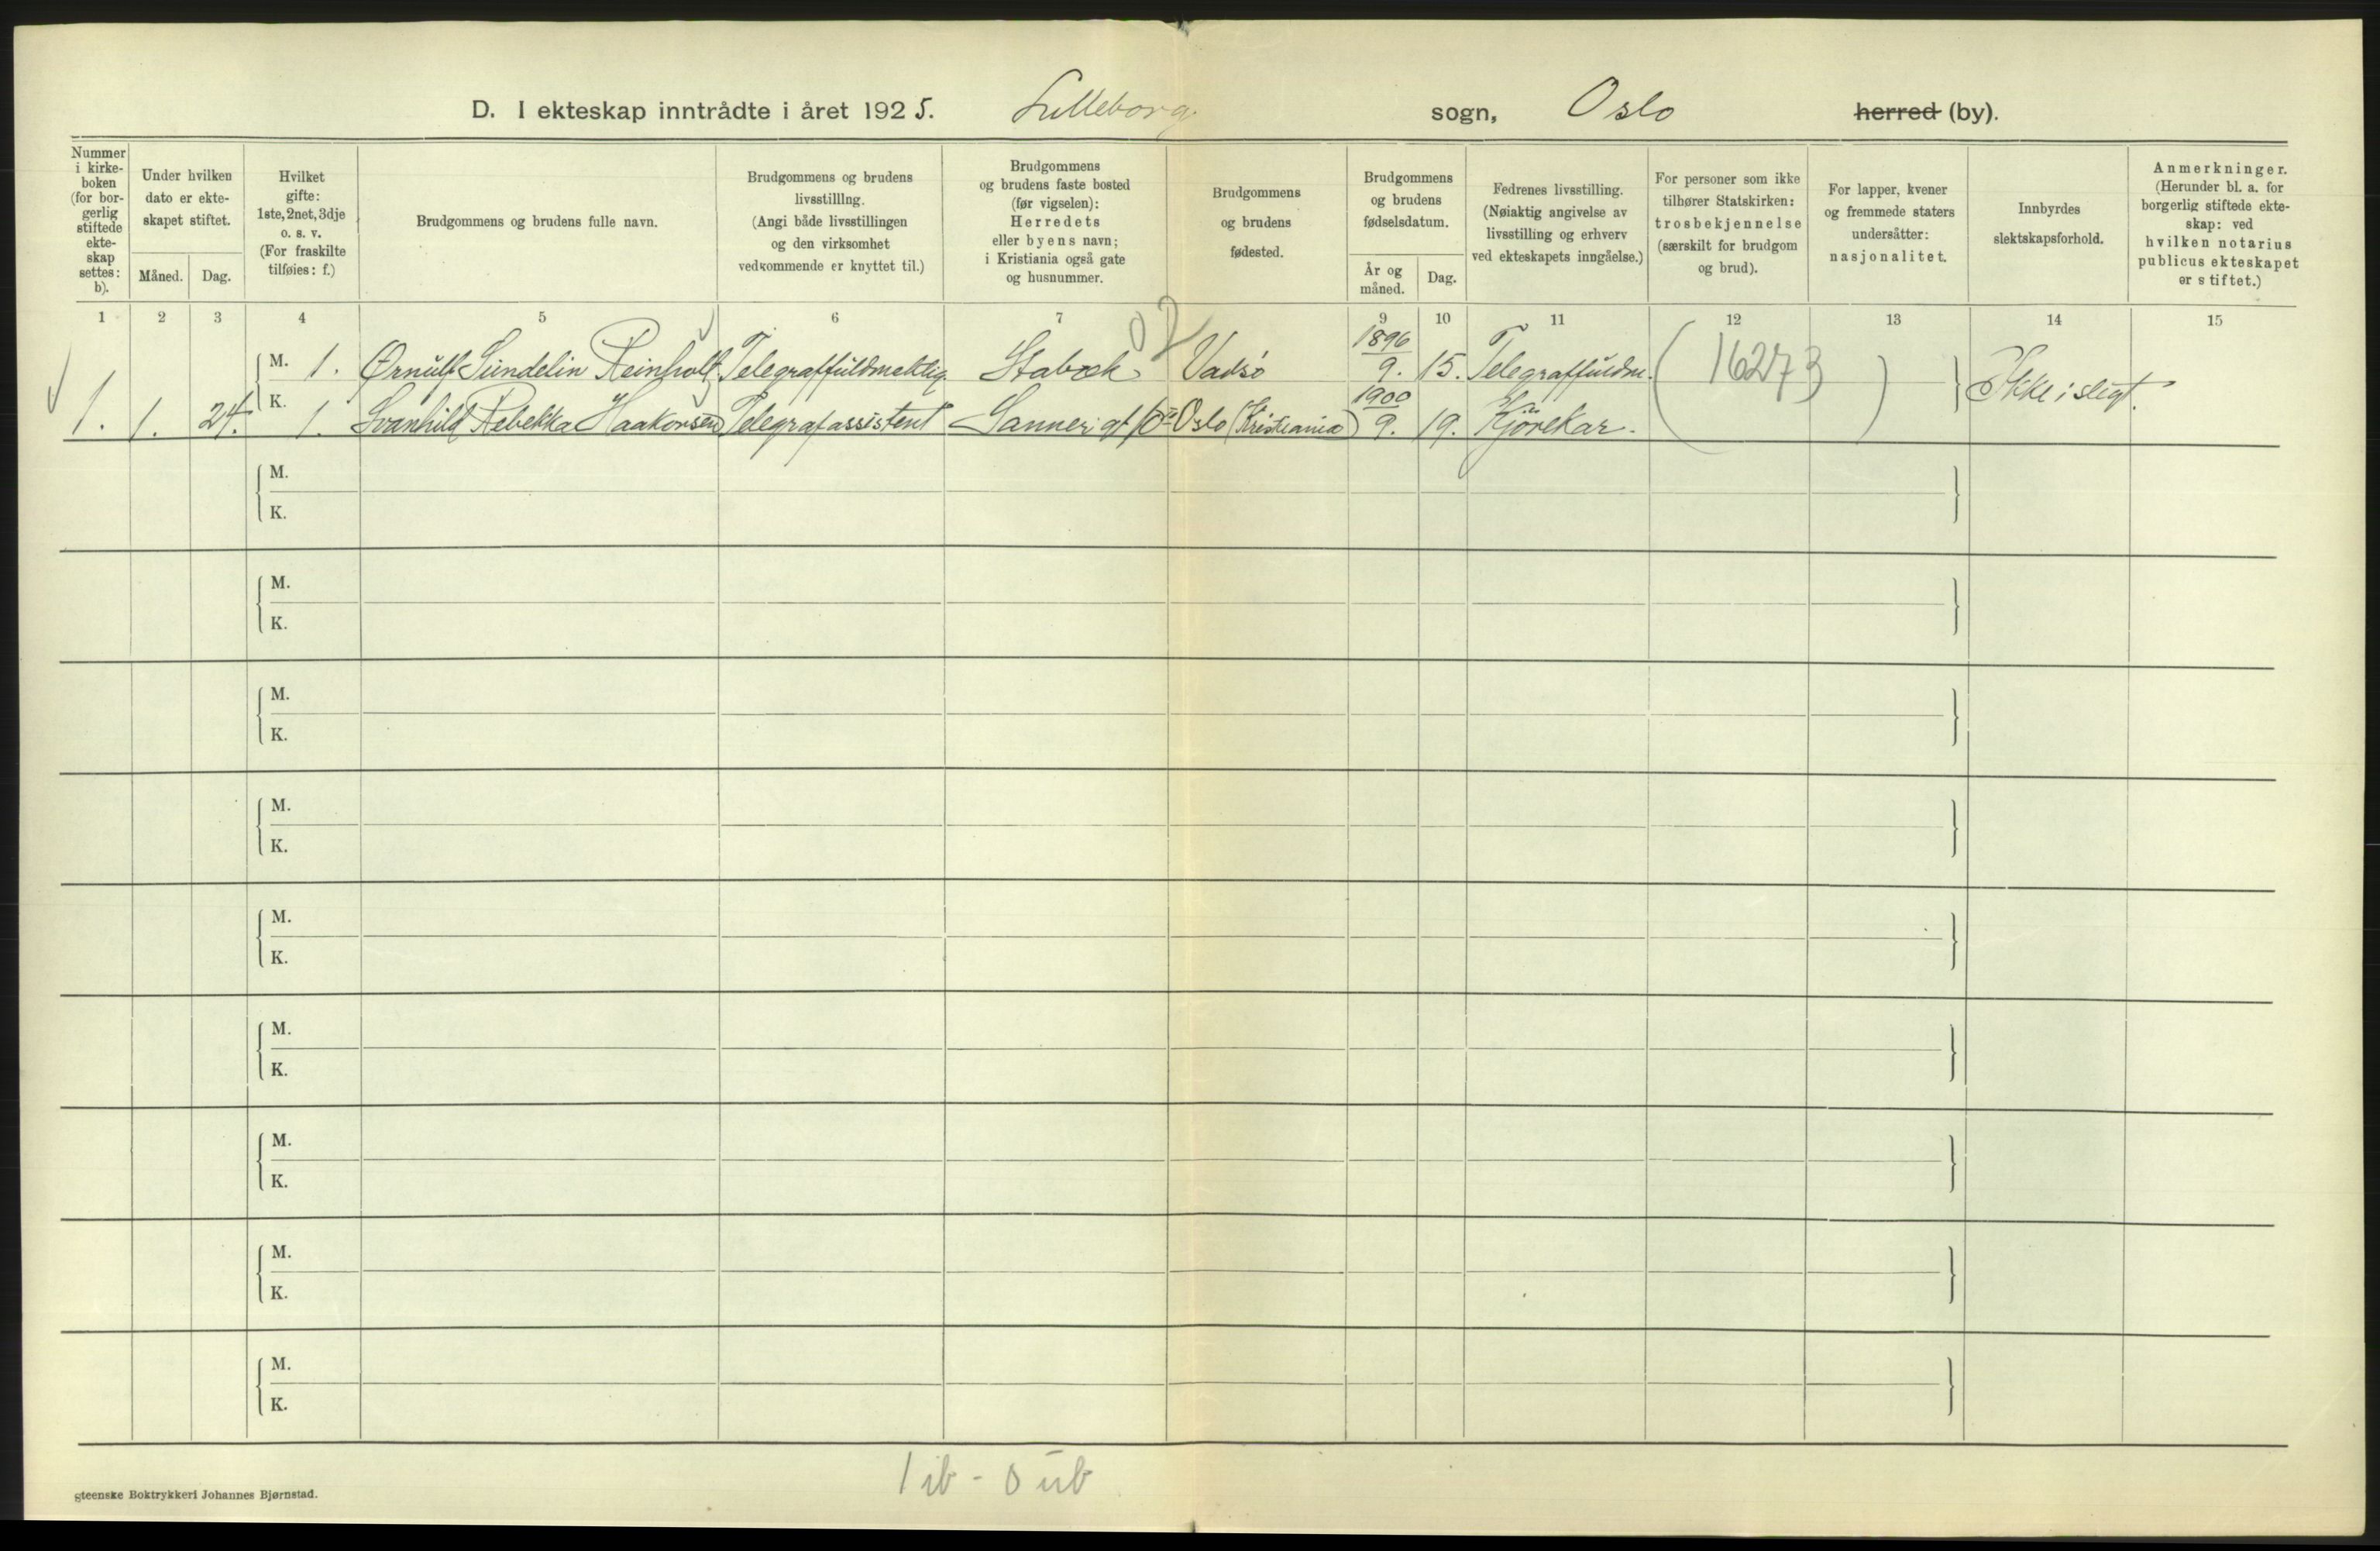 D. I ekteskap inntrådte i året 1925. Lilleborg sogn, Oslo herred (by).
Nummer i kirkeboken (for borgerlig stiftede ekteskap settes: b).
Under hvilken dato er ekteskapet stiftet.
Måned. Dag.
Hvilket gifte: 1ste, 2net, 3dje o. s. v. (For fraskilte tilføies: f.)
Brudgommens og brudens fulle navn.
Brudgommens og brudens livsstilllng. (Angi både livsstillingen og den virksomhet vedkommende er knyttet til.)
Brudgommens og brudens faste bosted (før vigselen): Herredets eller byens navn; i Kristiania også gate og husnummer.
Brudgommens og brudens fødested.
Brudgommens og brudens fødselsdatum.
År og måned. Dag.
Fedrenes livsstilling. (Nøiaktig angivelse av livsstilling og erhverv ved ekteskapets inngåelse.)
For personer som ikke tilhører Statskirken: trosbekjennelse (særskilt for brudgom og brud).
For lapper, kvener og fremmede staters undersåtter: nasjonalitet.
Innbyrdes slektskapsforhold.
Anmerkninger. (Herunder bl. a. for borgerlig stiftede ekteskap: ved hvilken notarius publicus ekteskapet er stiftet.)
1 2 3 4 5 6 7 9 10 11 12 13 14 15
M. 1. Ørnulf Sundelin Reinholt. Telegraffuldmektig. Stabæk Vadsø 1896 9. 15. Telegraffuldm. (16273) Ikke i slegt.
1. 1. 24. K. 1. Svanhild Rebekka Haakonsen Telegrafassistent Sanner gt 10 Oslo (Kristiania) 1900 9. 19. Kjørekar.
M.
K.
M.
K.
M.
K.
M.
K.
M.
K.
M.
K.
M.
K.
M.
K.
M.
K.
1 ib - 0 ub
gteenske Boktrykkeri Johannes Bjørnstad.